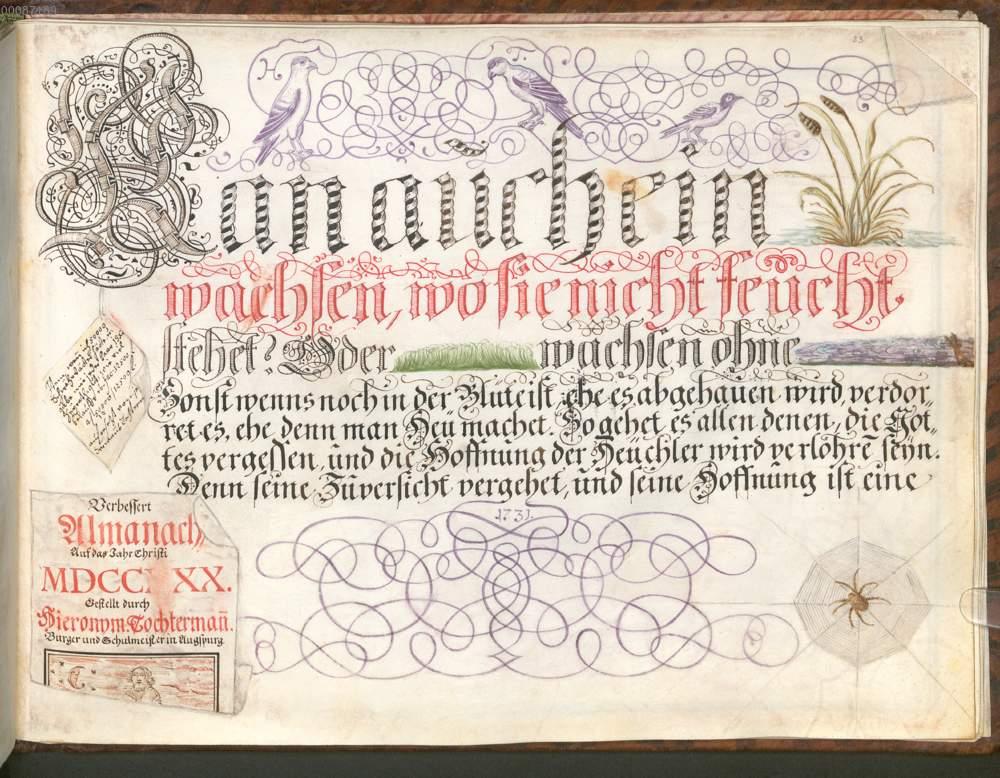 00087189
23
Kan auch ein
wachsen, wo sie nicht feucht
stehet? Oder wachsen ohne
Sonst wenns noch in der Blüte ist, ehe es abgehauen wird, verdor„
ret es, ehe denn man Heu machet. So gehet es allen denen, die Got„
tes vergessen, und die Hoffnung der Heuchler wird verlohrē seyn.
Denn seine Zuversicht vergehet, und seine Hoffnung ist eine
1731.
Verbessert
Almanach,
Auf das Jahr Christi
MDCC XX.
Gestellt durch
Hieronym. Tochtermañ.
Burger und Schulmeister in Augspurg.